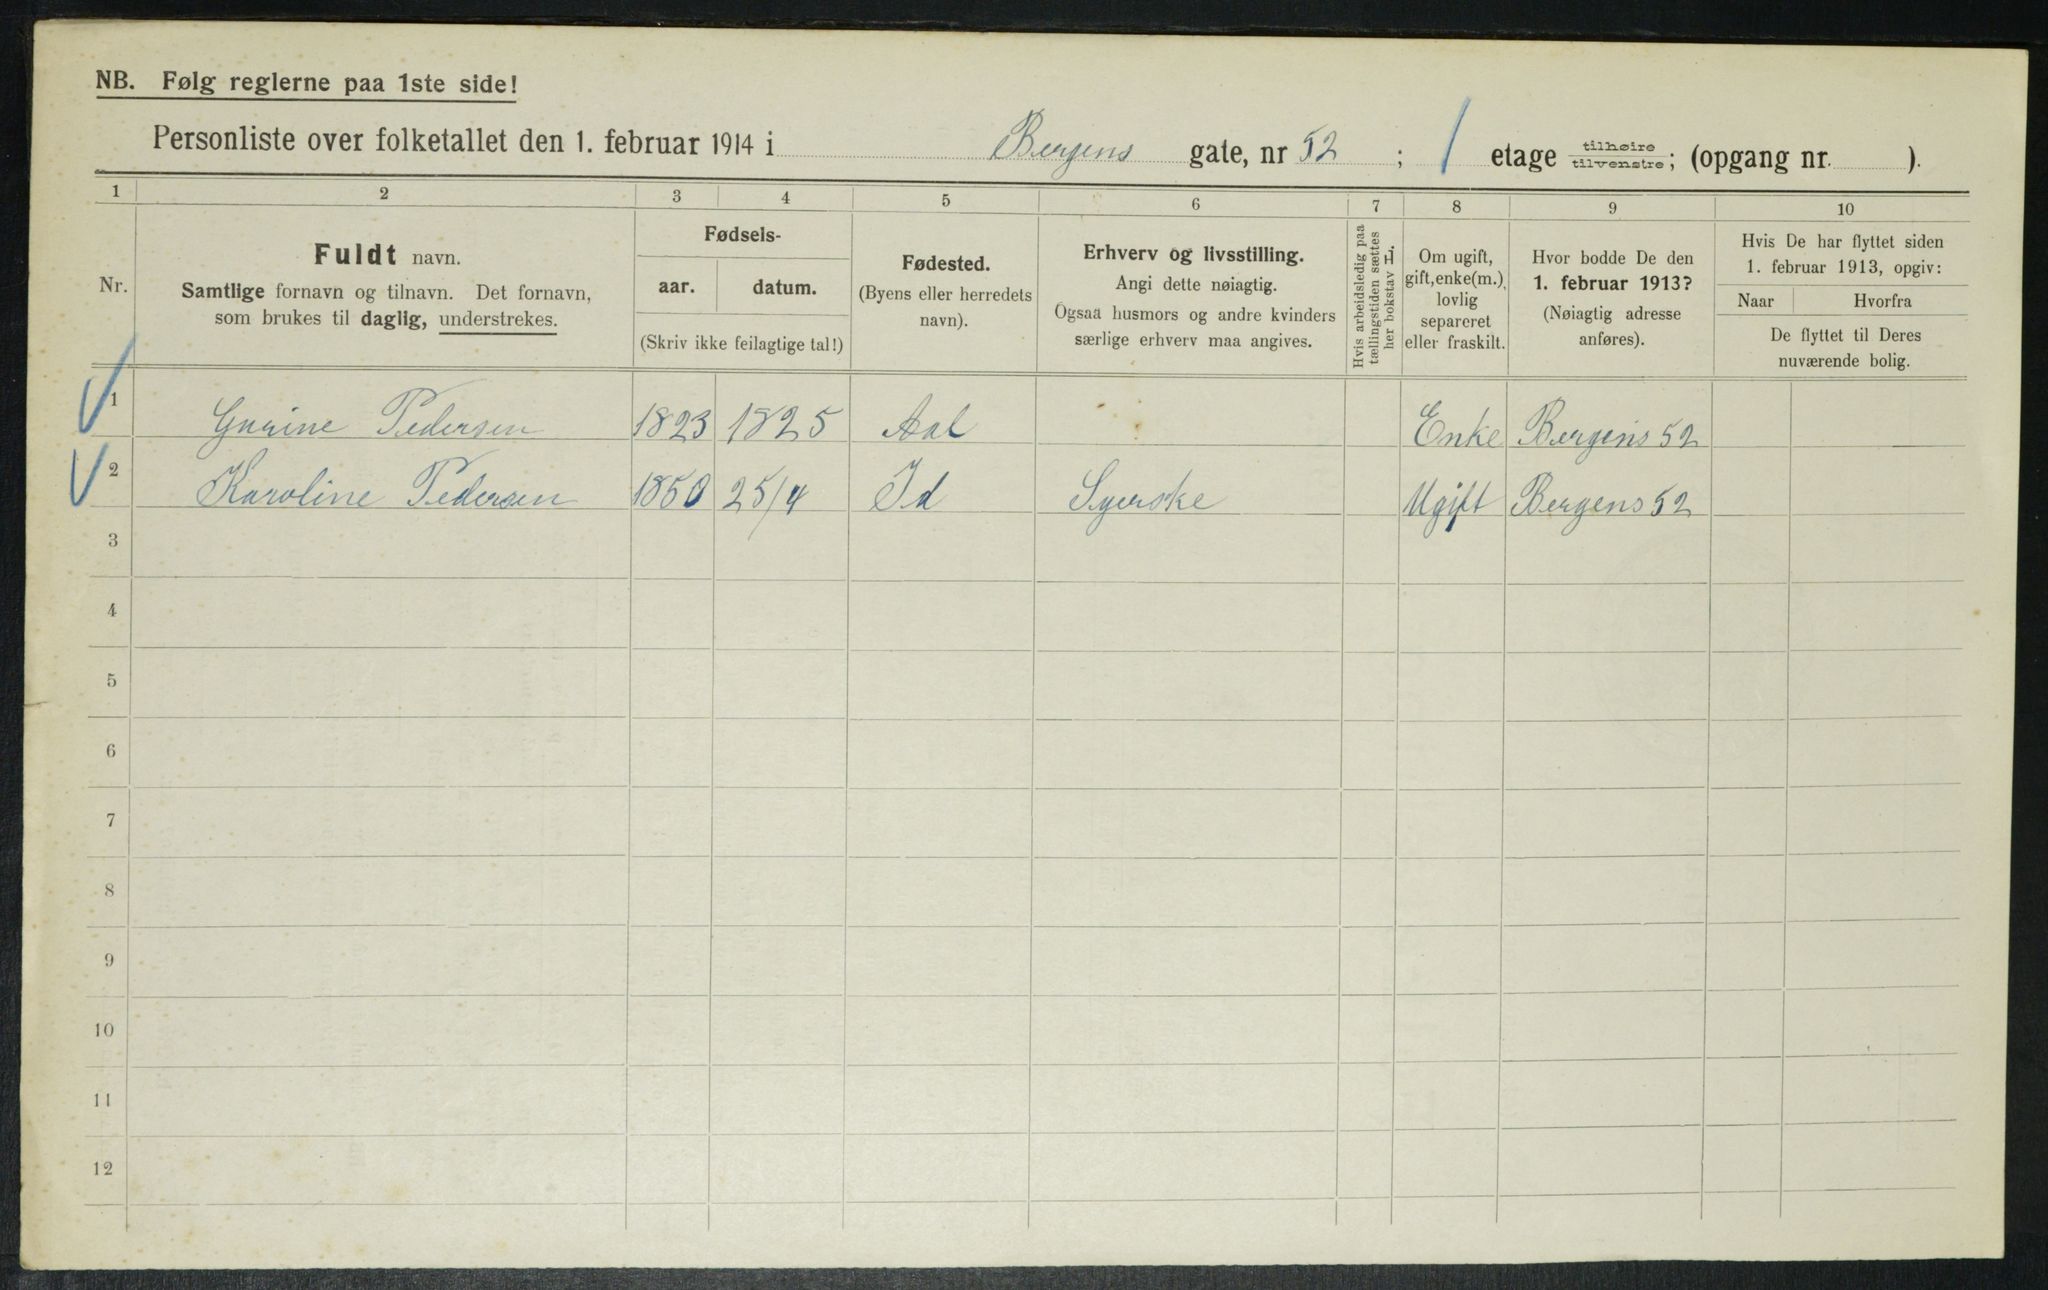 NB. Følg reglerne paa 1ste side!
Personliste over folketallet den 1. februar 1914 i Bergens gate, nr 52 ; 1 etage tilhøire tilvenstre; (opgang nr. ).
1 2 3 4 5 6 7 8 9 10
Nr.
Fuldt navn.
Samtlige fornavn og tilnavn. Det fornavn,
som brukes til daglig, understrekes.
Fødsels-
aar. datum.
(Skriv ikke feilagtige tal!)
Fødested.
(Byens eller herredets
navn).
Erhverv og livsstilling.
Angi dette nøiagtig.
Ogsaa husmors og andre kvinders
særlige erhverv maa angives.
Hvis arbeidsledig paa
tællingstiden sættes
her bokstav L.
Om ugift,
gift, enke(m.),
lovlig
separeret
eller fraskilt.
Hvor bodde De den
1. februar 1913?
(Nøiagtig adresse
anføres).
Hvis De har flyttet siden
1. februar 1913, opgiv:
Naar Hvorfra
De flyttet til Deres
nuværende bolig.
1 Gurine Pedersen 1823 1825 Aal Enke Bergens 52
2 Karoline Pedersen 1850 25/4 Id Syerske Ugift Bergens 52
3
4
5
6
7
8
9
10
11
12